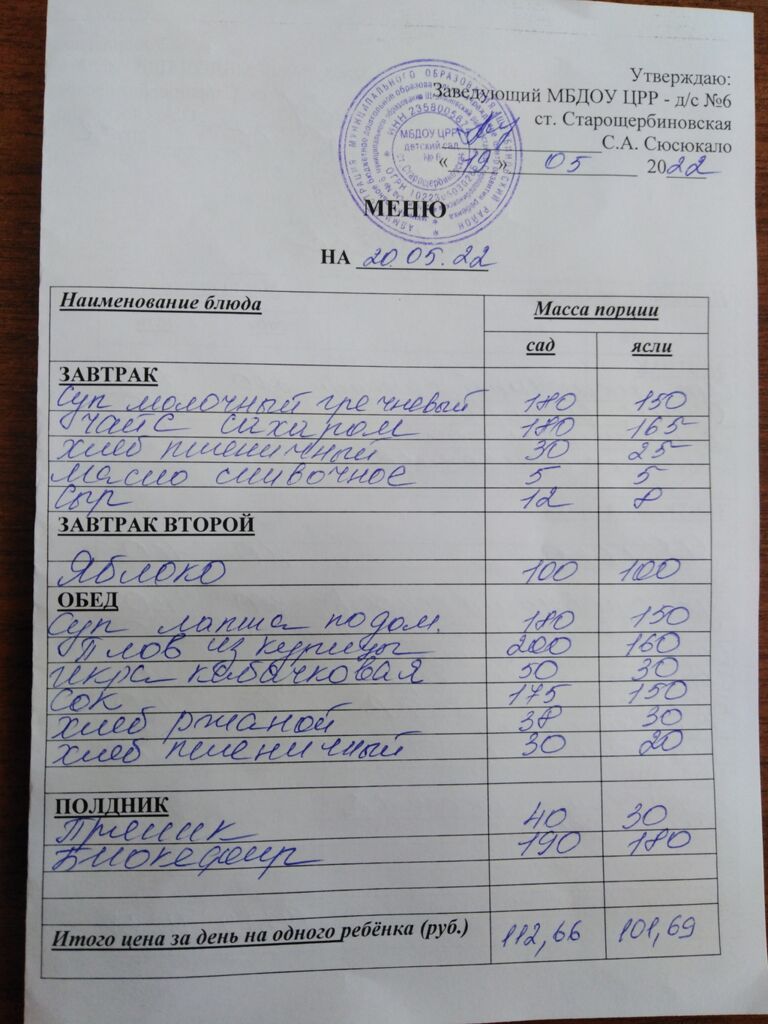 Утверждаю:
Заведующий МБДОУ ЦРР - д/с №6
ст. Старощербиновская
С.А. Сюсюкало
« 19 » 05 2022
МБДОУ ЦРР
детский сад
МЕНЮ
НА 20.05.22
Наименование блюда Масса порции
сад ясли
ЗАВТРАК
Суп молочный гречневый 180 150
Чай с сахаром 180 165
Хлеб пшеничный 30 25
Масло сливочное 5 5
Сыр 12 8
ЗАВТРАК ВТОРОЙ
Яблоко 100 100
ОБЕД
Суп лапша по дом. 180 150
Плов из курицы 200 160
Икра кабачковая 50 30
Сок 175 150
Хлеб ржаной 38 30
Хлеб пшеничный 30 20
ПОЛДНИК
Пряник 40 30
Биокефир 190 180
Итого цена за день на одного ребёнка (руб.) 112,66 101,69